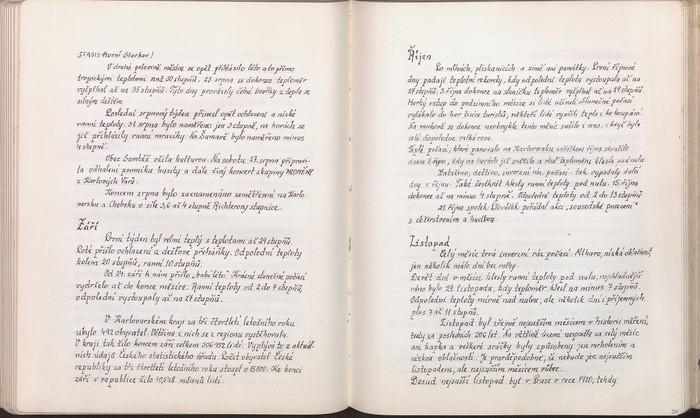 STASIS Horní Blatná)
V druhé polovině měsíce se opět přihlásilo léto a to přímo
tropickými teplotami nad 30 stupňů. 23. srpna se dokonce teploměr
vyšplhal až na 35 stupňů. Tyto dny provázely četné bouřky z tepla se
silným deštěm.
Poslední srpnový týden přinesl opět ochlazení a nízké
ranní teploty. 31. srpna bylo naměřeno jen 3 stupně, na horách se
již přihlásily ranní mrazíky. Na Šumavě bylo naměřeno mínus
4 stupně.
Obec Sadov ožila kulturou. Na sobotu 27. srpna připravi-
la odhalení pomníku husity a dále živý koncert skupiny
z Karlových Varů.
Koncem srpna bylo zaznamenáno zemětřesení na Karlo-
varsku a Chebsku o síle 3,6 až 4 stupně Richterovy stupnice.
Září
První týden byl velmi teplý s teplotami až 29 stupňů.
Poté přišlo ochlazení a dešťové přeháňky. Odpolední teploty
kolem 20 stupňů, ranní 10 stupňů.
Od 24. září k nám přišlo „babí léto“. Krásné slunečné počasí
vydrželo až do konce měsíce. Ranní teploty od 2 do 7 stupňů,
odpolední vystoupaly až na 27 stupňů.
V Karlovarském kraji za tři čtvrtletí letošního roku
ubylo 492 obyvatel. Většina z nich se z regionu vystěhovala.
V kraji tak žilo koncem září celkem 306 952 lidí. Vyplývá to z aktuál-
ních údajů Českého statistického úřadu. Počet obyvatel České
republiky za tři čtvrtletí letošního roku stoupl o 15800. Ke konci
září v republice žilo 10,548 milionů lidí.
Říjen
Po mlhách, plískanicích a zimě ani památky. První říjnové
dny padají teplotní rekordy, kdy odpolední teploty vystoupaly až na
27 stupňů, 3. října dokonce na sluníčku teploměr vyšplhal až na 47 stupňů.
Hezký vstup do podzimního měsíce si lidé užívali. Slunečné počasí
vylákalo do hor tisíce turistů, někteří lidé využili teplo i ke koupání.
Na venkově se dokonce neobvykle touto měrou sušilo i seno, i když byla
celé dopoledne velká rosa.
Teplé počasí, které panovalo na Karlovarsku začátkem října skončilo
dnem 8. říjen, kdy na horách již sněžilo a rtuť teploměru klesla pod nulu.
Zataženo, deštivo, inverzní ráz počasí - tak vypadaly další
dny v říjnu. Také častokrát klesly ranní teploty pod nulu. 15. října
dokonce až na mínus 4 stupně. Odpolední teploty od 2 do 13 stupňů.
21. října spolek Dvořáček pořádal akci „sousedské posezení“
s občerstvením a hudbou.
Listopad
Celý měsíc trvá inverzní ráz počasí. Mlhavo, nízká oblačnost,
jen několik málo dní bez mlhy.
Devět dní v měsíci klesly ranní teploty pod nulu, nejchladnější
ráno bylo 29. listopadu, kdy teploměr klesl na mínus 7 stupňů.
Odpolední teploty mírně nad nulou, ale několik dní i příjemných
plus 7 až 11 stupňů.
Listopad byl zřejmě nejsušším měsícem v historii měření,
tedy za posledních 206 let. Na většině území nespadla za celý měsíc
ani kapka a veškeré srážky byly způsobeny jen mrholením a
nízkou oblačností. Je pravděpodobné, že nebude jen nejsušším
listopadem, ale nejsušším měsícem vůbec.
Dosud nejsušší listopad byl v Praze v roce 1920, tehdy